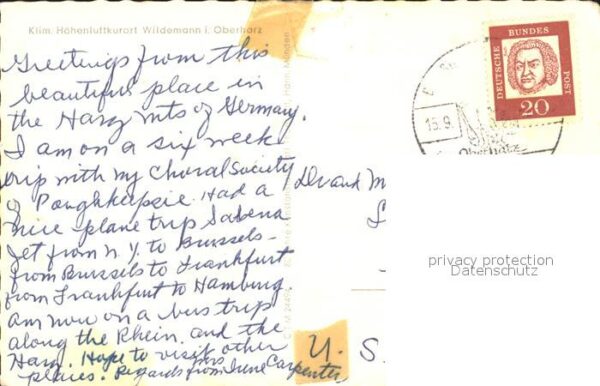 Klim. Höhenluftkurort Wildemann i. Oberharz
Greetings from this
beautiful place in
the Harz mts of Germany.
I am on a six week
trip with my Choral Society
of Poughkeepsie. Had a
nice plane trip Sabena
Jet from N.Y. to Brussels -
from Brussels to Frankfurt
from Frankfurt to Hamburg.
Am now on a bus trip
along the Rhein. and the
Harz. Hope to visit other
places. Regards from Mrs June Carpenter
DEUTSCHE BUNDESPOST
20
15.9.
Oberharz
Dr and M
U. S.
privacy protection
Datenschutz